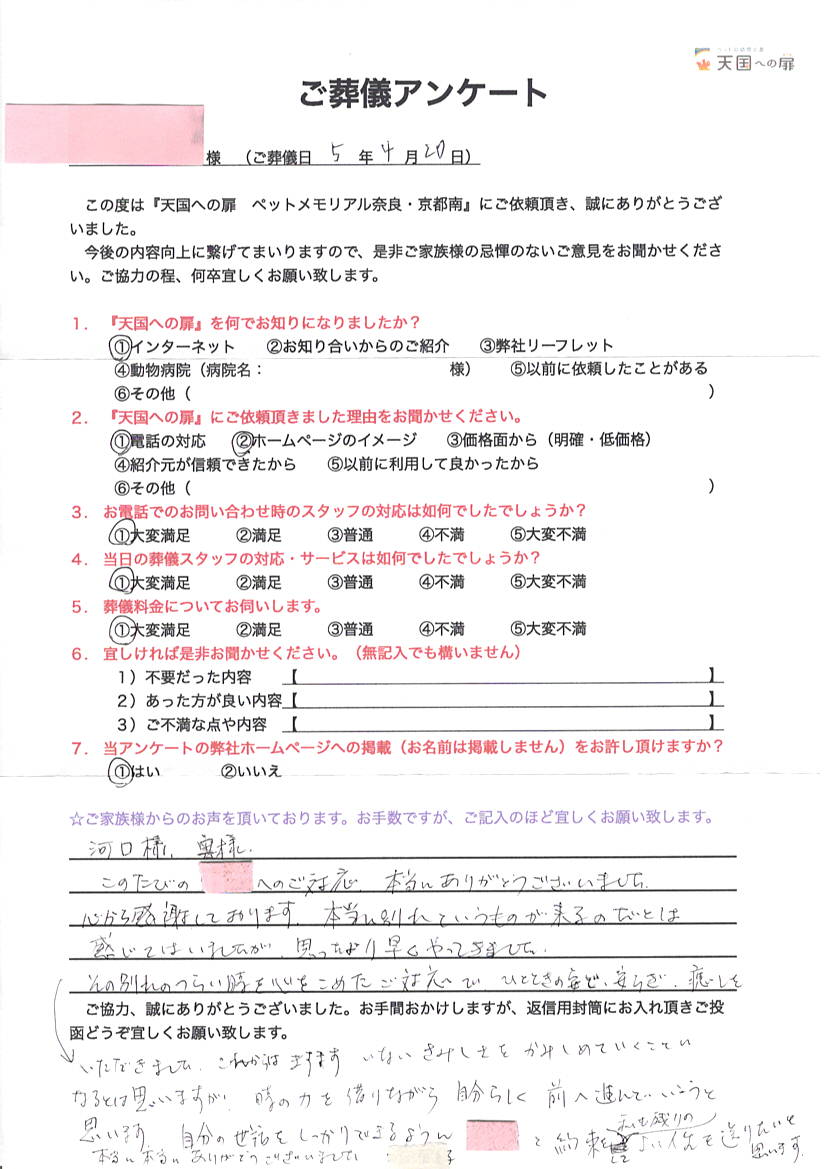 ペットのお葬式屋さん
天国への扉
ご葬儀アンケート
様 （ご葬儀日 5 年 4 月 20 日）
この度は『天国への扉 ペットメモリアル奈良・京都南』にご依頼頂き、誠にありがとうござ
いました。
今後の内容向上に繋げてまいりますので、是非ご家族様の忌憚のないご意見をお聞かせくださ
い。ご協力の程、何卒宜しくお願い致します。
1． 『天国への扉』を何でお知りになりましたか？
①インターネット ②お知り合いからのご紹介 ③弊社リーフレット
④動物病院（病院名： 様） ⑤以前に依頼したことがある
⑥その他（ ）
2． 『天国への扉』にご依頼頂きました理由をお聞かせください。
①電話の対応 ②ホームページのイメージ ③価格面から（明確・低価格）
④紹介元が信頼できたから ⑤以前に利用して良かったから
⑥その他（ ）
3． お電話でのお問い合わせ時のスタッフの対応は如何でしたでしょうか？
①大変満足 ②満足 ③普通 ④不満 ⑤大変不満
4． 当日の葬儀スタッフの対応・サービスは如何でしたでしょうか？
①大変満足 ②満足 ③普通 ④不満 ⑤大変不満
5． 葬儀料金についてお伺いします。
①大変満足 ②満足 ③普通 ④不満 ⑤大変不満
6． 宜しければ是非お聞かせください。（無記入でも構いません）
1）不要だった内容 【 】
2）あった方が良い内容【 】
3）ご不満な点や内容 【 】
7． 当アンケートの弊社ホームページへの掲載（お名前は掲載しません）をお許し頂けますか？
①はい ②いいえ
☆ご家族様からのお声を頂いております。お手数ですが、ご記入のほど宜しくお願い致します。
河口様、奥様。
このたびの へのご対応、本当にありがとうございました。
心から感謝しております。本当に別れというものが来るのだとは
感じてはいましたが、思ったより早くやってきました。
その別れのつらい時を心をこめたご対応で、ひとときの 安らぎ、癒しを
ご協力、誠にありがとうございました。お手間おかけしますが、返信用封筒にお入れ頂きご投
函どうぞ宜しくお願い致します。
いただきました。これからはますます いないさみしさを かみしめていくことに
なるとは思いますが、時の力を借りながら 自分らしく 前へ進んでいこうと
思います。自分の世話をしっかりできるように と約束 私も残りの よい人生を送りたいと
思います。
本当に本当にありがとうございました